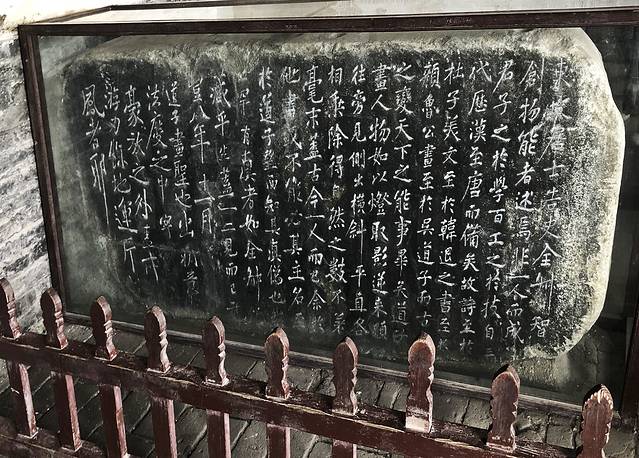 東坡居士 史全叔智
創物能者述焉非一人而成
君子之於學百工之於技自三
代歷漢至唐而備矣故詩至於
杜子美文至於韓退之書至於
顏魯公畫至於吳道子而古
之變天下之能事畢矣道子
畫人物如以燈取影逆來順
往旁見側出橫斜平直各
相乘除得自然之數不差
毫末盖古今一人而已余於
他畫或不能必其主名至
於道子望而知其真僞也
罕有真者如全叔
藏平生盖一二見而已
八年十一月
道子畫聖也出新意
法度之中
豪放之外
游刃餘地運斤
風者耶